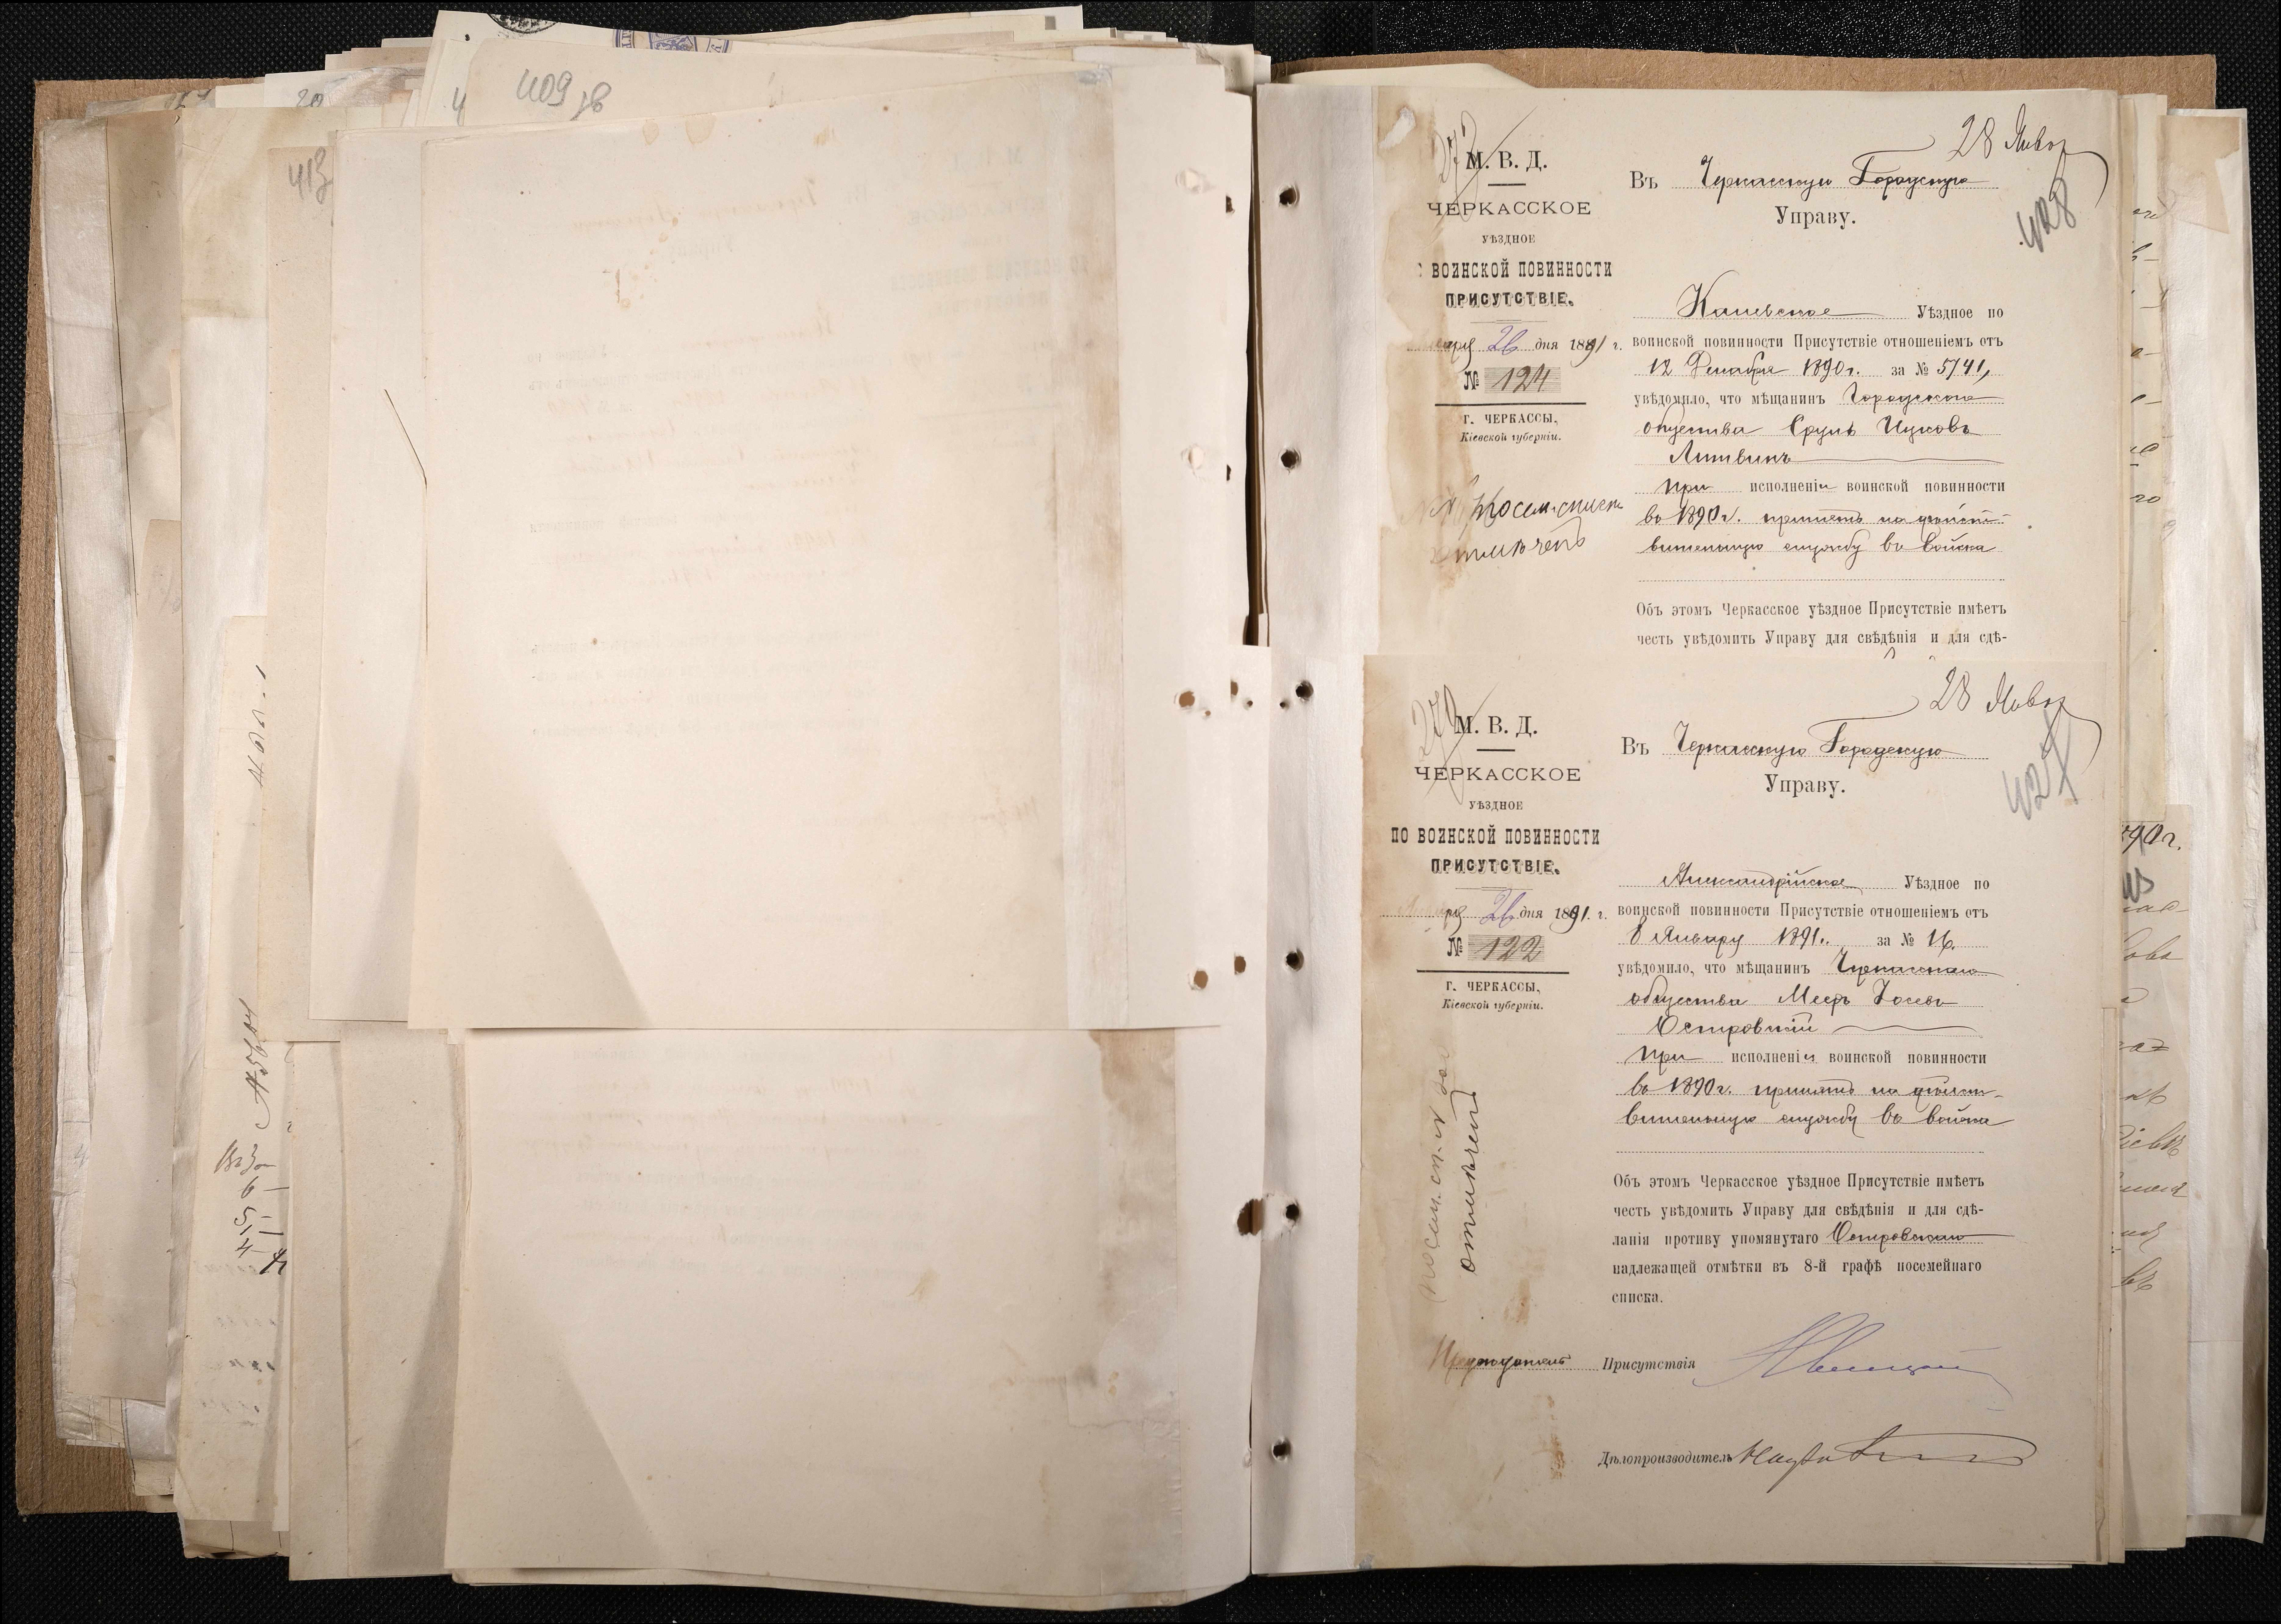 409 зв
20
413
28 Янвр
428
М. В. Д.
ЧЕРКАССКОЕ
УѢЗДНОЕ
ВОИНСКОЙ ПОВИННОСТИ
ПРИСУТСТВІЕ.
26 дня 1891 г.
№ 124
Г. ЧЕРКАССЫ,
Кіевской губерніи.
Въ Черкасскую Городскую
Управу.
Каневское Уѣздное по
воинской повинности Присутствіе отношеніемъ отъ
12 Декабря 1890 г. за № 5741,
увѣдомило, что мѣщанинъ
общества Сруль Ицковъ
Литвинъ
при исполненіи воинской повинности
въ 1890 г. принятъ на дѣйст-
вительную службу въ войска
Объ этомъ Черкасское уѣздное Присутствіе имѣетъ
честь увѣдомить Управу для свѣдѣнія и для сдѣ-
отмѣчено
28 Янвр
427
М. В. Д.
ЧЕРКАССКОЕ
УѢЗДНОЕ
ПО ВОИНСКОЙ ПОВИННОСТИ
ПРИСУТСТВІЕ.
26 дня 1891. г.
№ 122
Г. ЧЕРКАССЫ,
Кіевской губерніи.
Въ Черкасскую Городскую
Управу.
Александрійское Уѣздное по
воинской повинности Присутствіе отношеніемъ отъ
8 Января 1891 г. за № 16.
увѣдомило, что мѣщанинъ Черкасскаго
общества Меер Іосевъ
Островскій
при исполненіи воинской повинности
въ 1890 г. принятъ на дѣйст-
вительную службу въ войска
Объ этомъ Черкасское уѣздное Присутствіе имѣетъ
честь увѣдомить Управу для свѣдѣнія и для сдѣ-
ланія противу упомянутаго Островскаго
надлежащей отмѣтки въ 8-й графѣ посемейнаго
списка.
отмѣчено
Предсѣдатель Присутствія
Дѣлопроизводитель